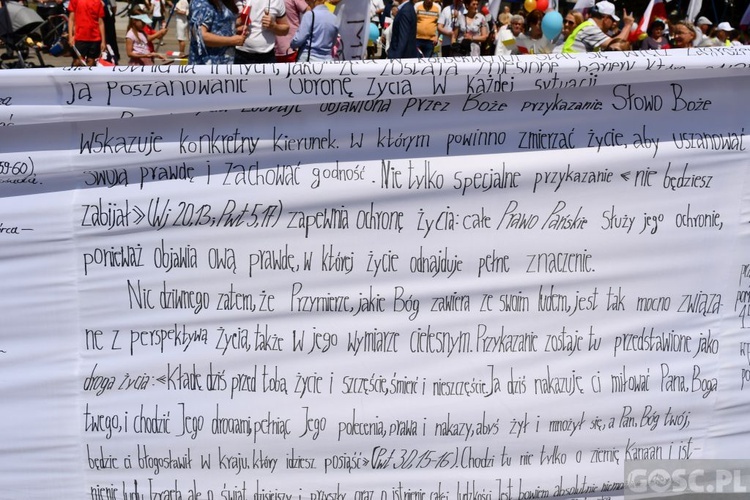 Ją poszanowanie i obronę życia w każdej sytuacji
objawiona przez Boże przykazanie. Słowo Boże
wskazuje konkretny kierunek. W którym powinno zmierzać życie, aby uszanować
swoją prawdę i zachować godność. Nie tylko specjalne przykazanie «nie będziesz
zabijał» (Wj 20.13; Pwt 5,17) zapewnia ochronę życia: całe Prawo Pańskie służy jego ochronie,
ponieważ objawia ową prawdę, w której życie odnajduje pełne znaczenie.
Nic dziwnego zatem, że Przymierze, jakie Bóg zawiera ze swoim ludem, jest tak mocno związa-
ne z perspektywą życia, także w jego wymiarze cielesnym. Przykazanie zostaje tu przedstawione jako
droga życia: «Kładę dziś przed tobą życie i szczęście, śmierć i nieszczęście. Ja dziś nakazuję ci miłować Pana, Boga
twego, i chodzić Jego drogami, pełniąc Jego polecenia, prawa i nakazy, abyś żył i mnożył się, a Pan, Bóg twój,
będzie ci błogosławił w kraju, który idziesz posiąść» (Pwt 30.15-16). Chodzi tu nie tylko o ziemię Kanaan i ist-
nienie ludu Izraela, ale o świat dzisiejszy i przyszły oraz o istnienie całej ludzkości. Jest bowiem absolutnie
59-60)
GOSC.PL